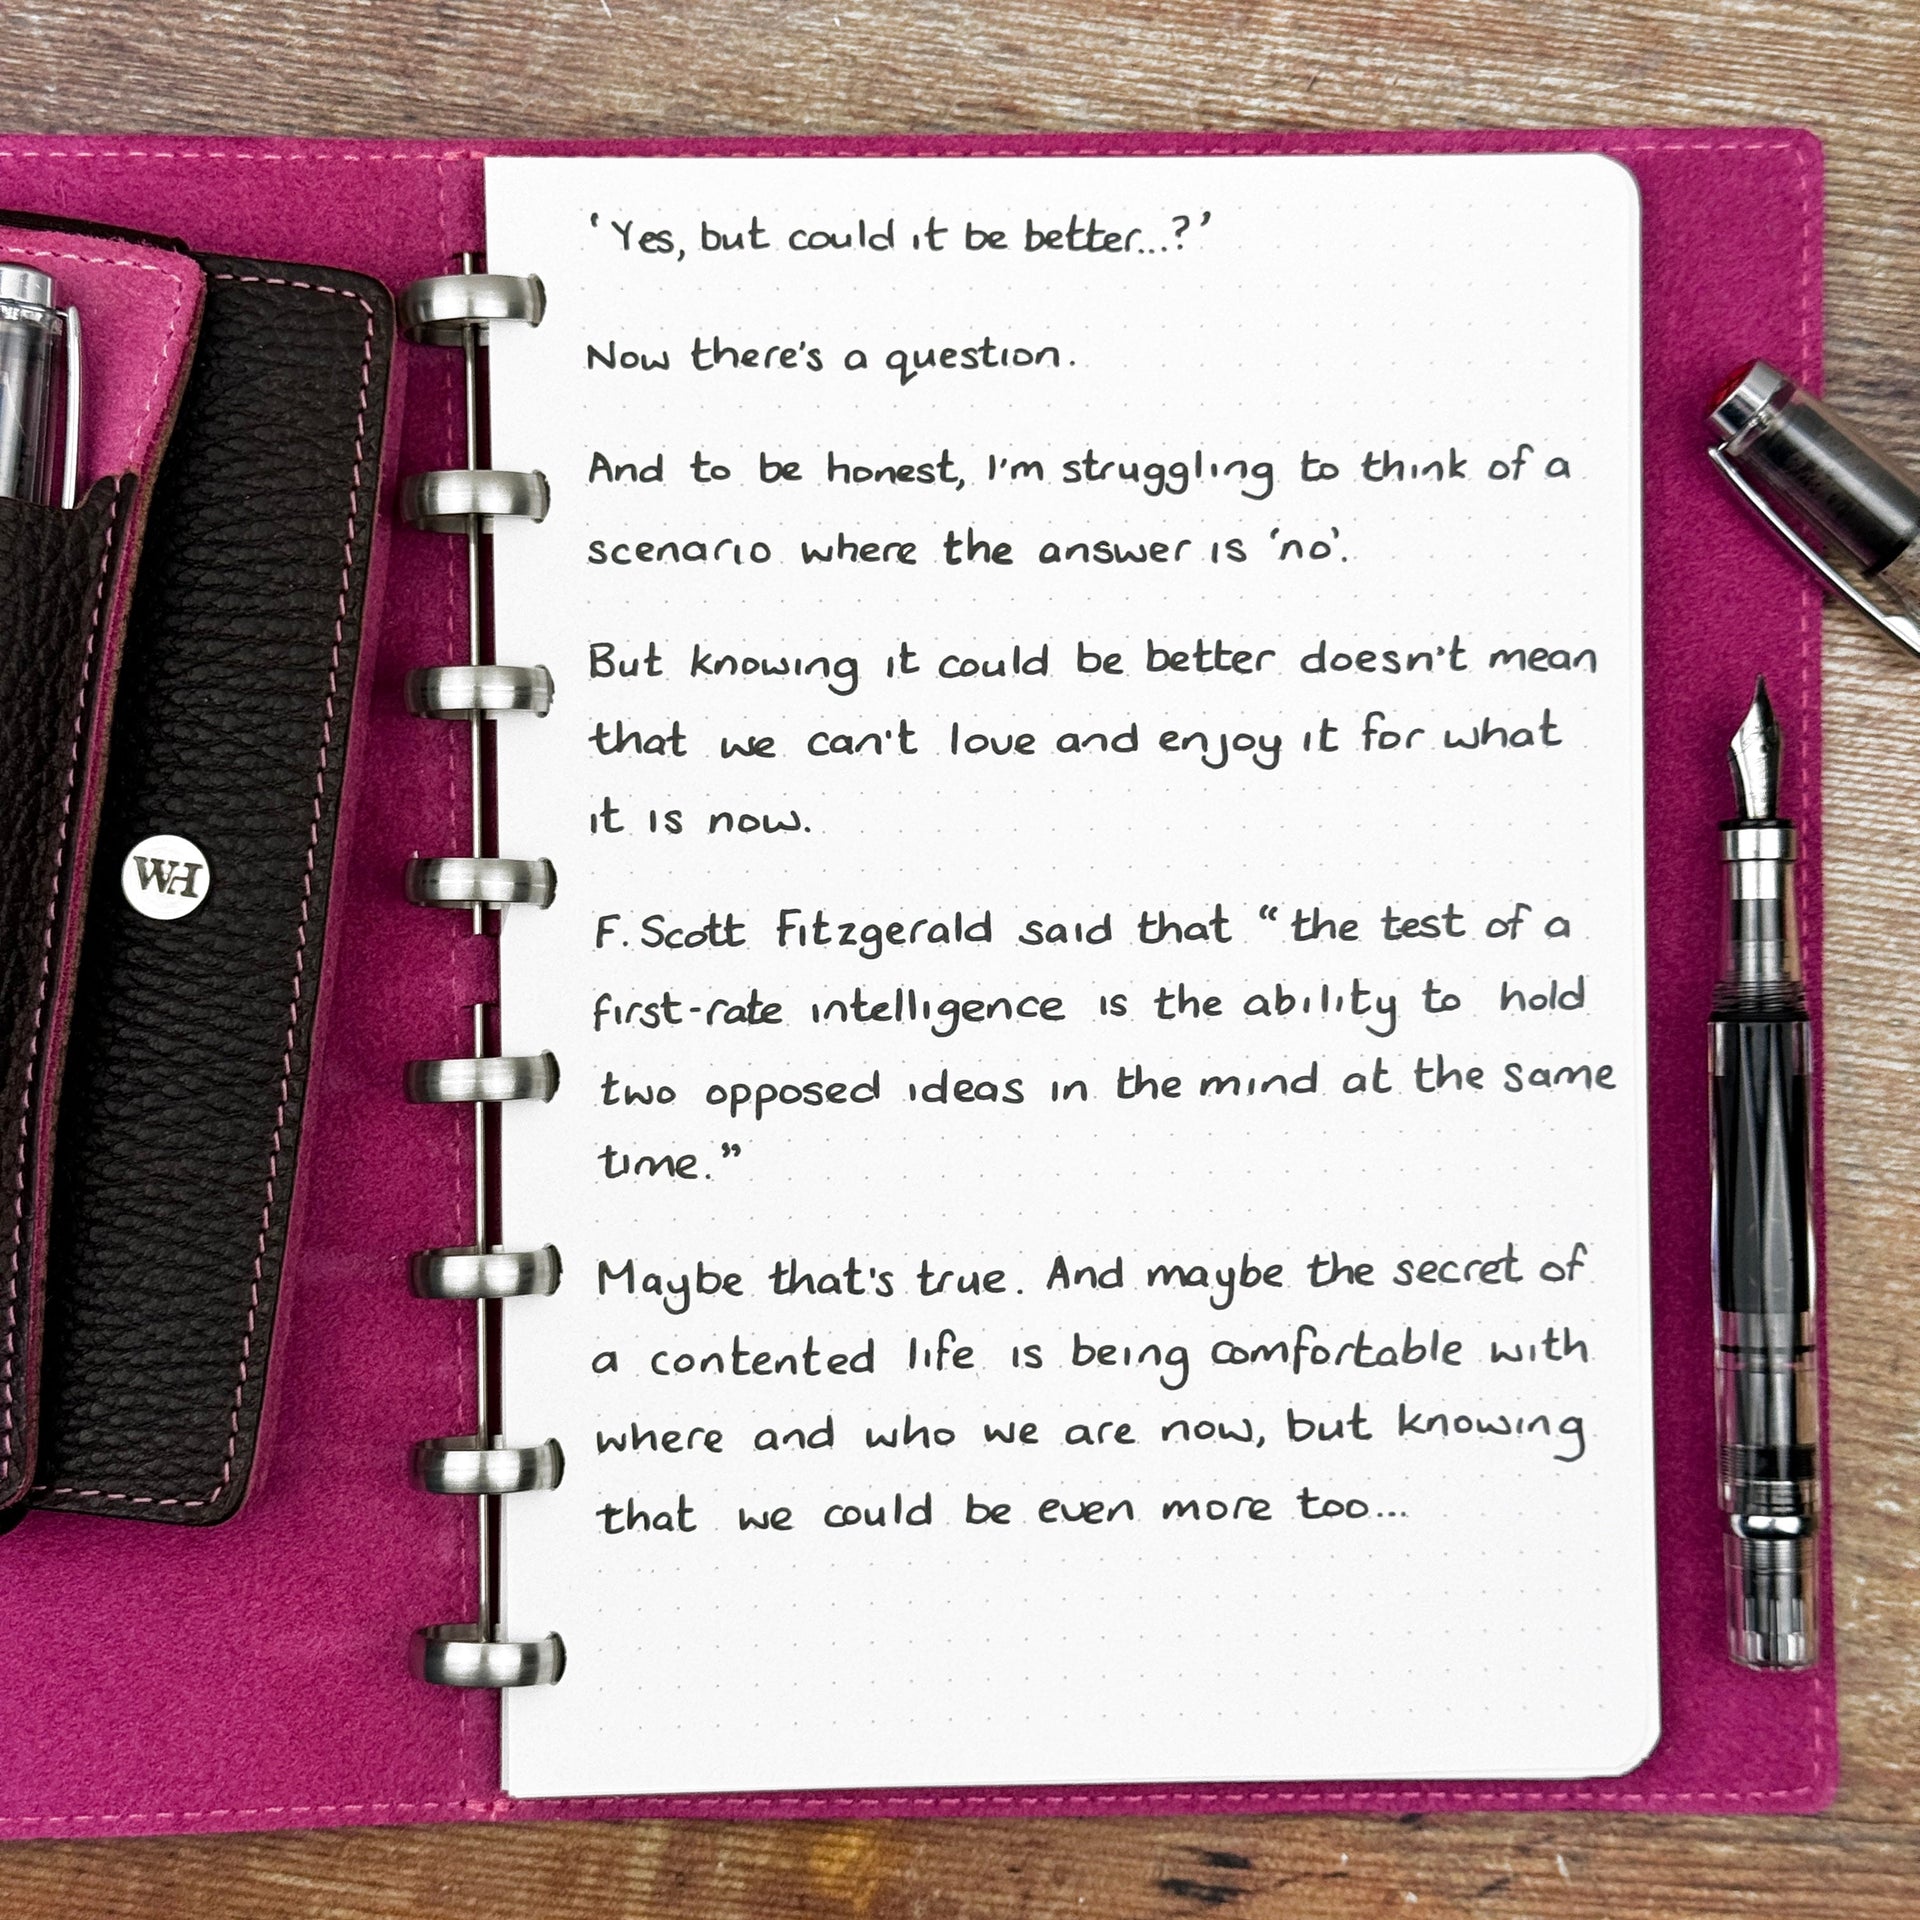 'Yes, but could it be better...?'
Now there's a question.
And to be honest, I'm struggling to think of a
scenario where the answer is 'no'.
But knowing it could be better doesn't mean
that we can't love and enjoy it for what
it is now.
F. Scott Fitzgerald said that "the test of a
first-rate intelligence is the ability to hold
two opposed ideas in the mind at the same
time."
Maybe that's true. And maybe the secret of
a contented life is being comfortable with
where and who we are now, but knowing
that we could be even more too...
WH